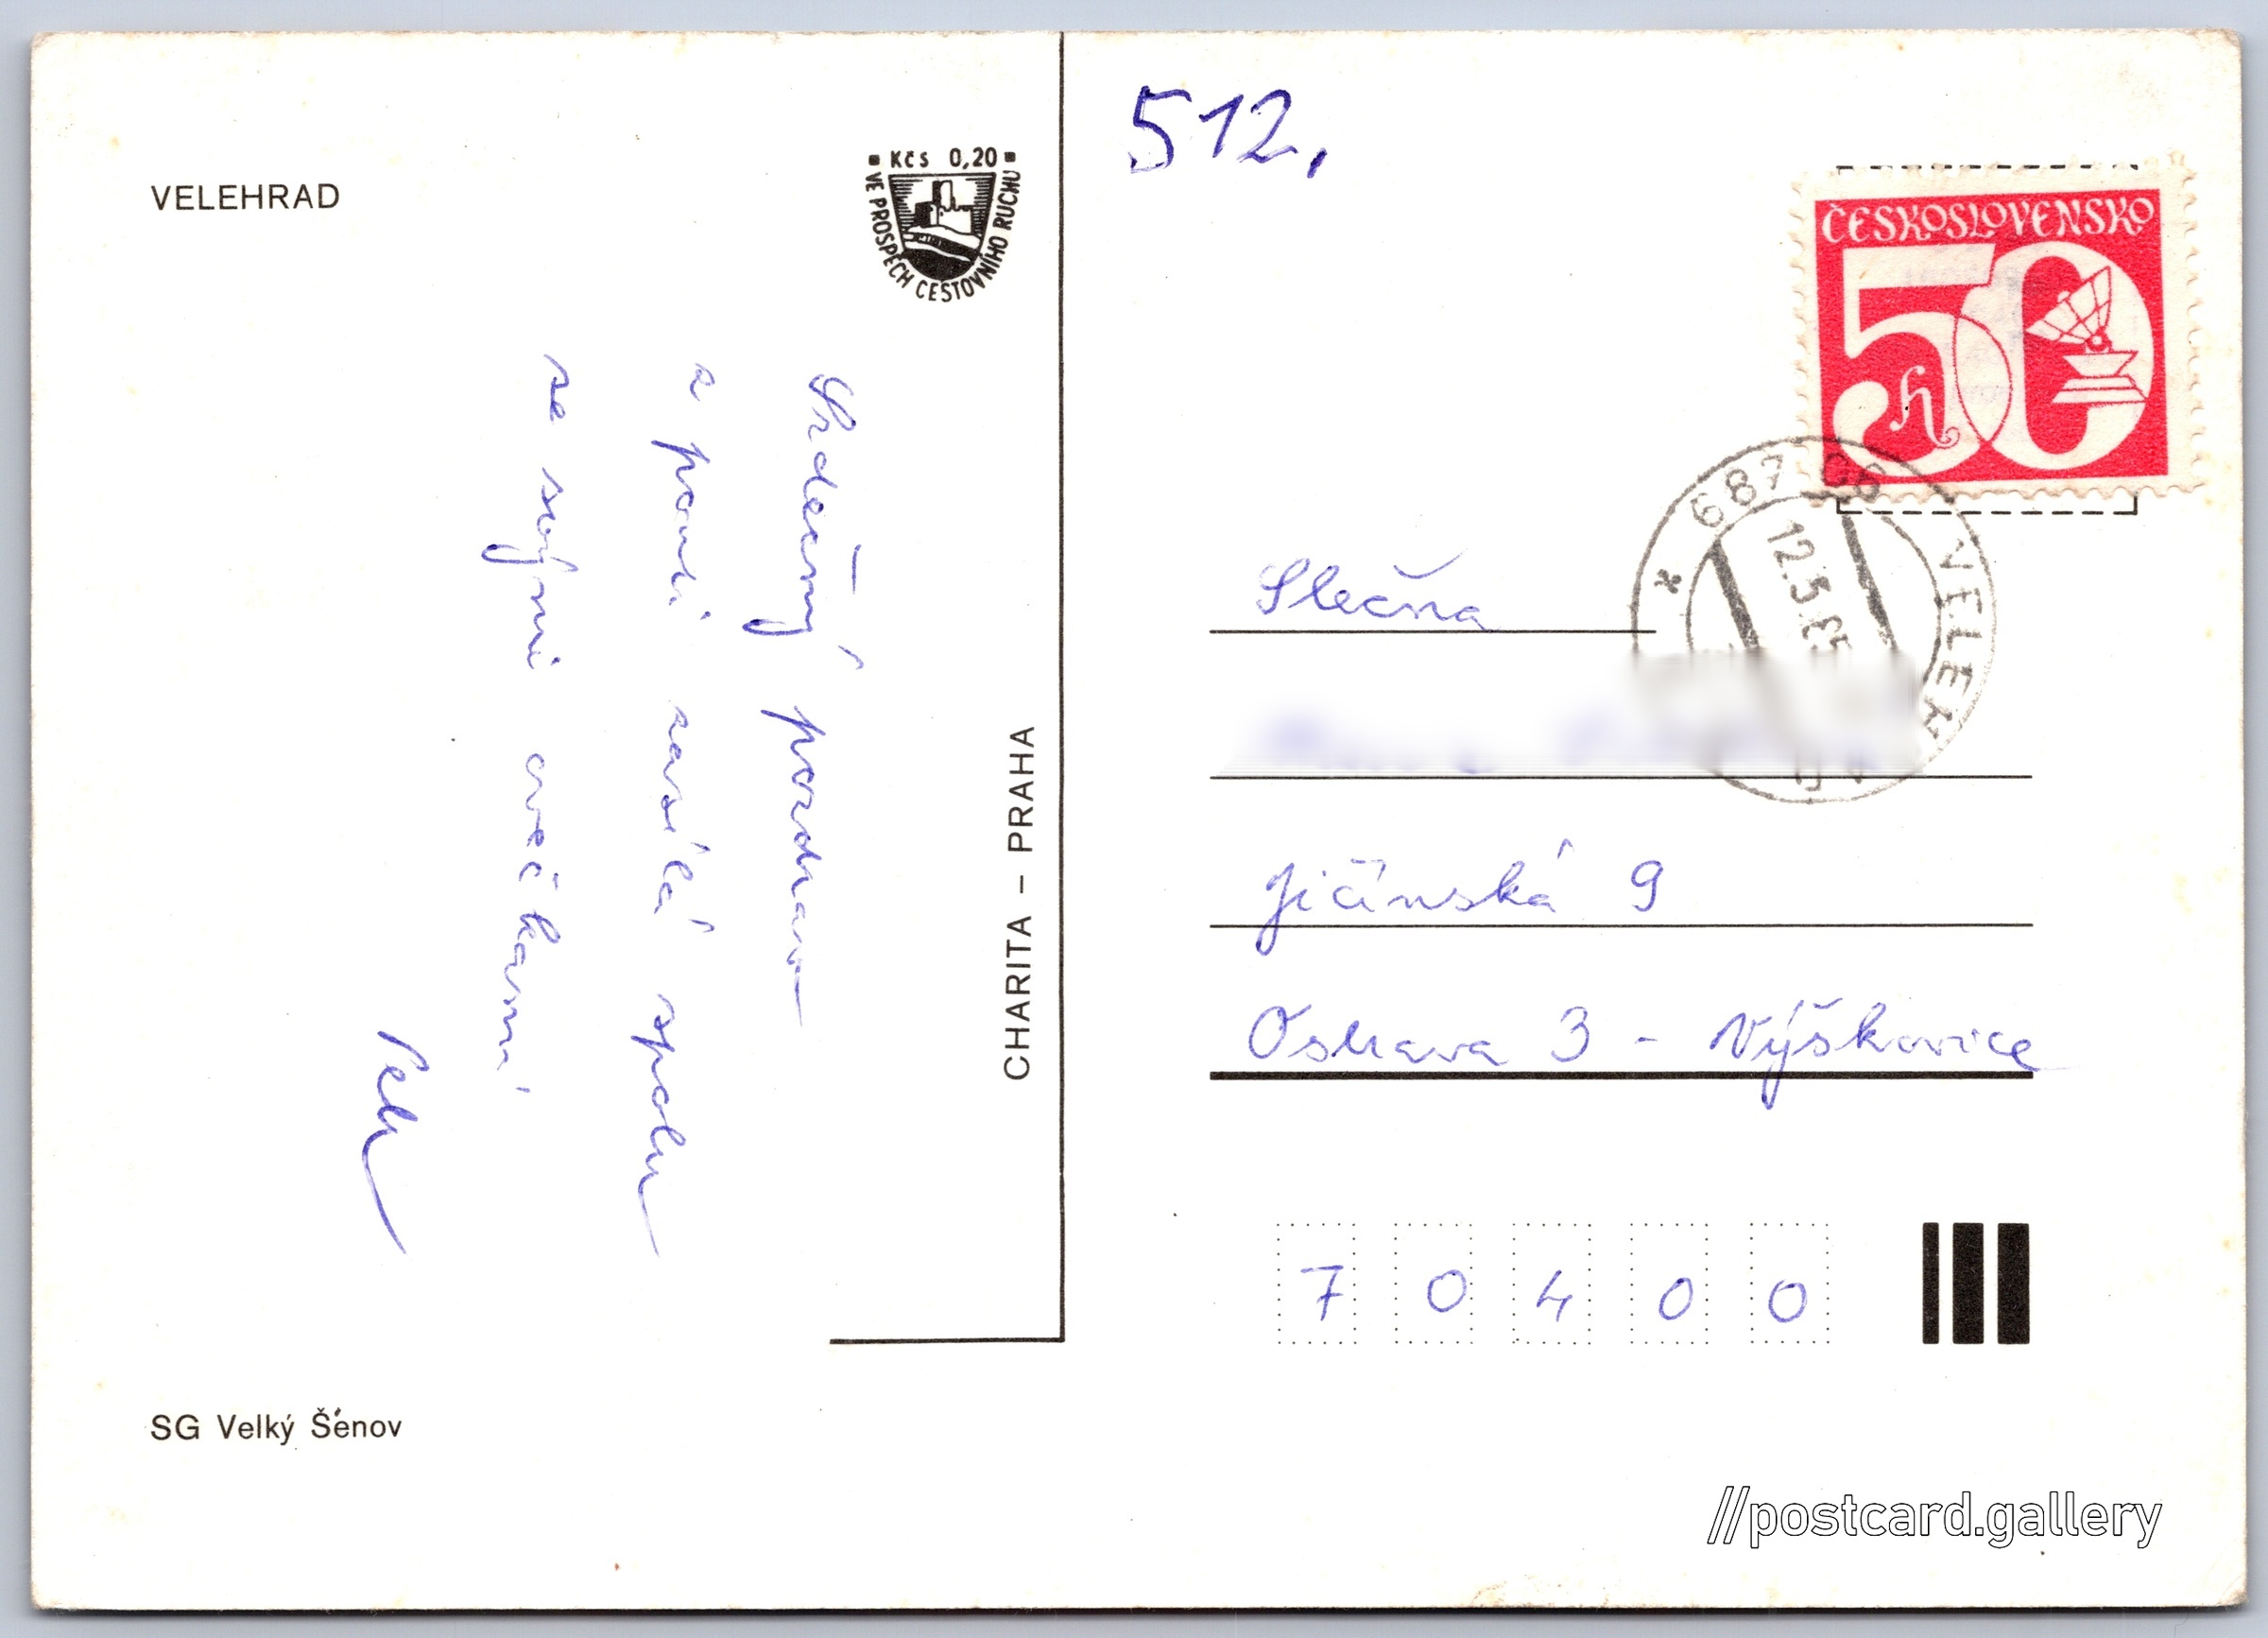 VELEHRAD
Kčs 0,20
VE PROSPĚCH CESTOVNÍHO RUCHU
Srdečný pozdrav
z pouti zasílá spolu
se svými ovečkami
Petr
CHARITA – PRAHA
SG Velký Šenov
512.
ČESKOSLOVENSKO
50 h
687 06 VELEH
12.5.85
Slečna
Jičínská 9
Ostrava 3 - Výškovice
7 0 4 0 0
//postcard.gallery